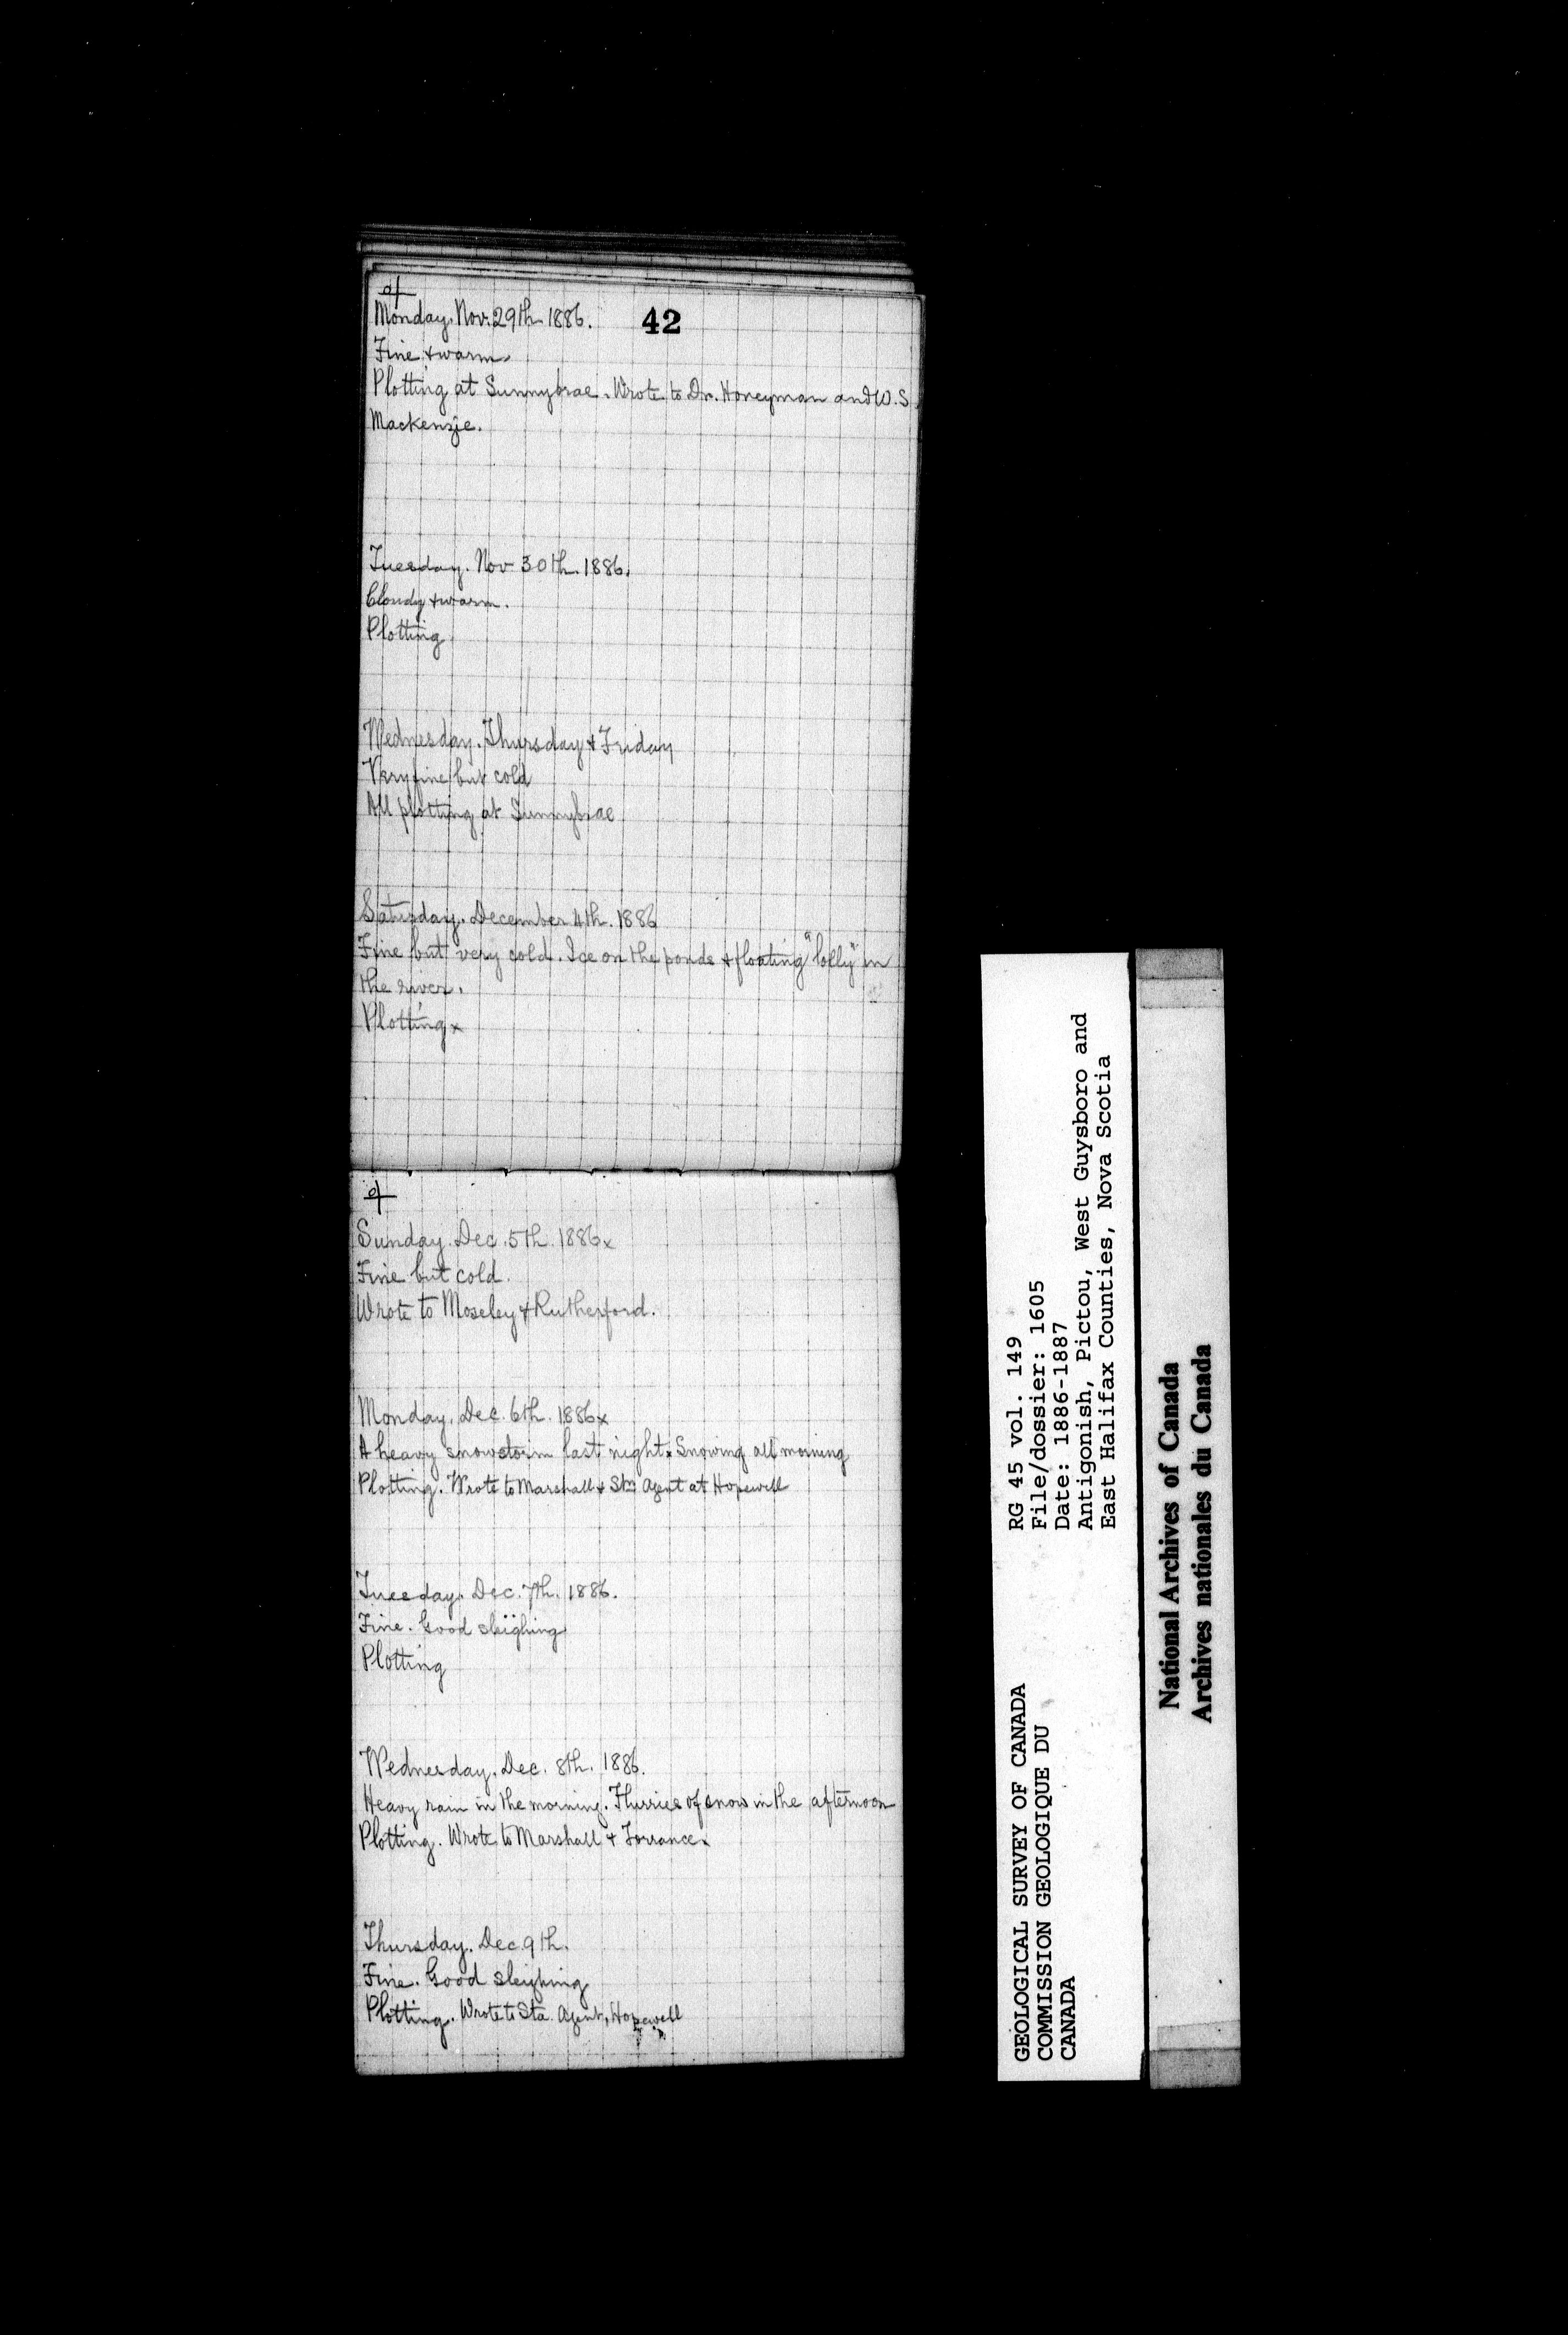 Monday. Nov. 29th 1886.
42
Fine & warm.
Plotting at Sunnybrae. Wrote to Dr. Honeyman and W. S.
Mackenzie.
Tuesday. Nov 30th. 1886.
Cloudy & warm.
Plotting
Wednesday. Thursday & Friday
Very fine but cold
All plotting at Sunnybrae
Saturday. December 4th. 1886
Fine but very cold. Ice on the ponds & floating "lolly" in
the river.
Plotting x
Sunday. Dec. 5th. 1886 x
Fine but cold.
Wrote to Moseley & Rutherford.
Monday. Dec. 6th. 1886 x
A heavy snowstorm last night x Snowing all morning
Plotting. Wrote to Marshall & Stn Agent at Hopewell
Tuesday. Dec. 7th. 1886.
Fine. Good sleighing
Plotting
Wednesday. Dec. 8th. 1886.
Heavy rain in the morning. Flurries of snow in the afternoon
Plotting. Wrote to Marshall & Torrance.
Thursday. Dec. 9th.
Fine. Good sleighing
Plotting. Wrote to Sta. Agent, Hopewell
RG 45 vol. 149
File/dossier: 1605
Date: 1886-1887
Antigonish, Pictou, West Guysboro and
East Halifax Counties, Nova Scotia
GEOLOGICAL SURVEY OF CANADA
COMMISSION GEOLOGIQUE DU
CANADA
National Archives of Canada
Archives nationales du Canada